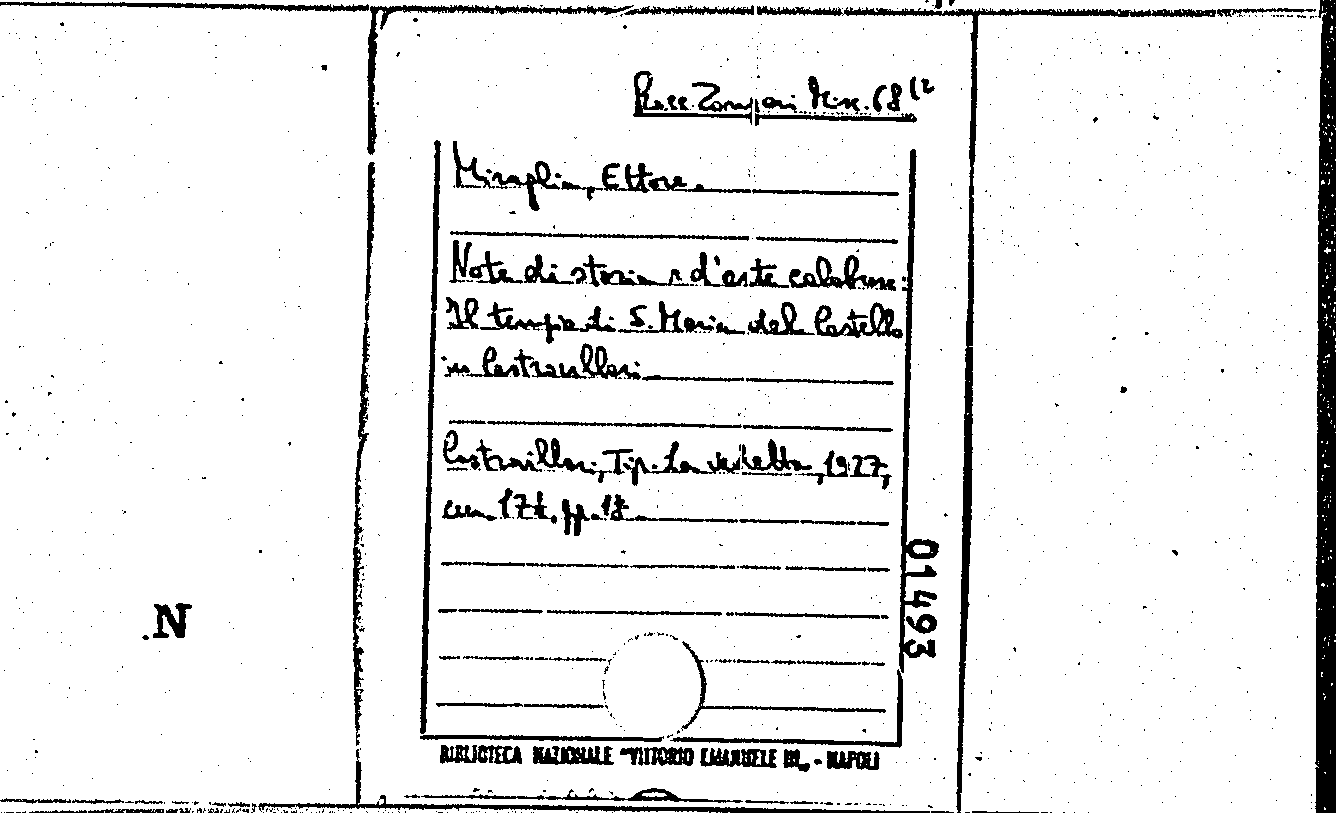 Racc. Zangari Misc. 68 (2
Miraglia, Ettore.
Note di storia e d'arte calabrese:
Il tempio di S. Maria del Castello
in Castrovillari
Castrovillari, Tip. La vedetta, 1927,
cm. 17½. pp. 17.
01493
N
BIBLIOTECA NAZIONALE "VITTORIO EMANUELE III„ - NAPOLI